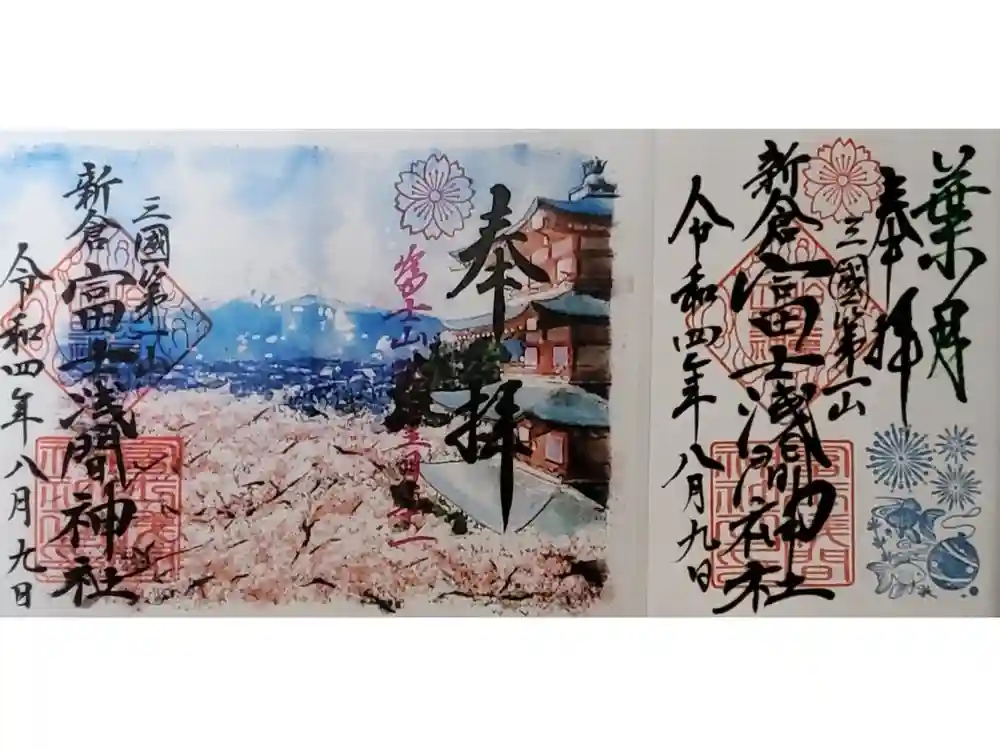 葉月
奉拝
三國第一山
新倉富士浅間神社
令和四年八月九日
奉拝
三國第一山
新倉富士浅間神社
令和四年八月九日